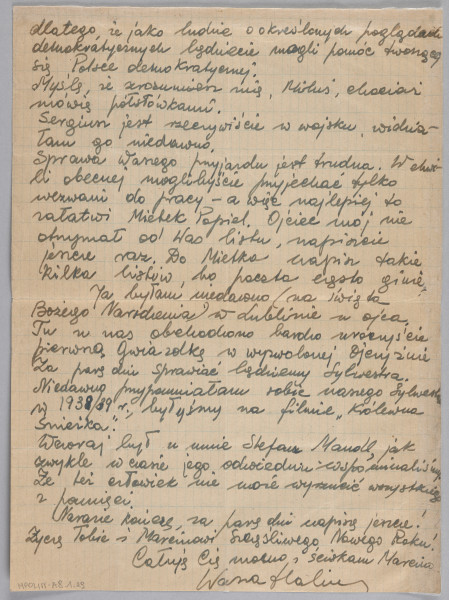 dlatego, że jako ludzie o określonych poglądach
demokratycznych będziecie mogli pomóc tworzącej
się Polsce demokratycznej.
Myślę, że zrozumiesz mię, Miluś, chociaż
mówię półsłówkami.
Sergiusz jest rzeczywiście w wojsku, widzia-
łam go niedawno.
Sprawa Waszego przyjazdu jest trudna. W chwi-
li obecnej moglibyście przyjechać tylko
wezwani do pracy – a więc najlepiej to
załatwi Mietek Popiel. Ojciec mój nie
otrzymał od Was listu, napiszcie
jeszcze raz. Do Mietka napisz także
kilka listów, bo poczta często ginie.
Ja byłam niedawno (na święta
Bożego Narodzenia) w Lublinie u ojca.
Tu u nas obchodzono bardzo uroczyście
pierwszą Gwiazdkę w wyzwolonej Ojczyźnie
Za parę dni sprawiać będziemy Sylwestra.
Niedawno przypomniałam sobie naszego Sylwestra
w 1938/39 r., byłyśmy na filmie „Królewna
Śnieżka".
Wczoraj był u mnie Stefan Mandl, jak
zwykle w czasie jego odwiedzin wspominaliśmy
Że też człowiek nie może wyrzucić wszystkiego
z pamięci
Narazie kończę, za parę dni napiszę jeszcze!
Życzę Tobie i Marcinowi Szczęśliwego Nowego Roku!
Całuję Cię mocno i ściskam Marcina
Wasza Halina
MPOLIN-A8.1.29